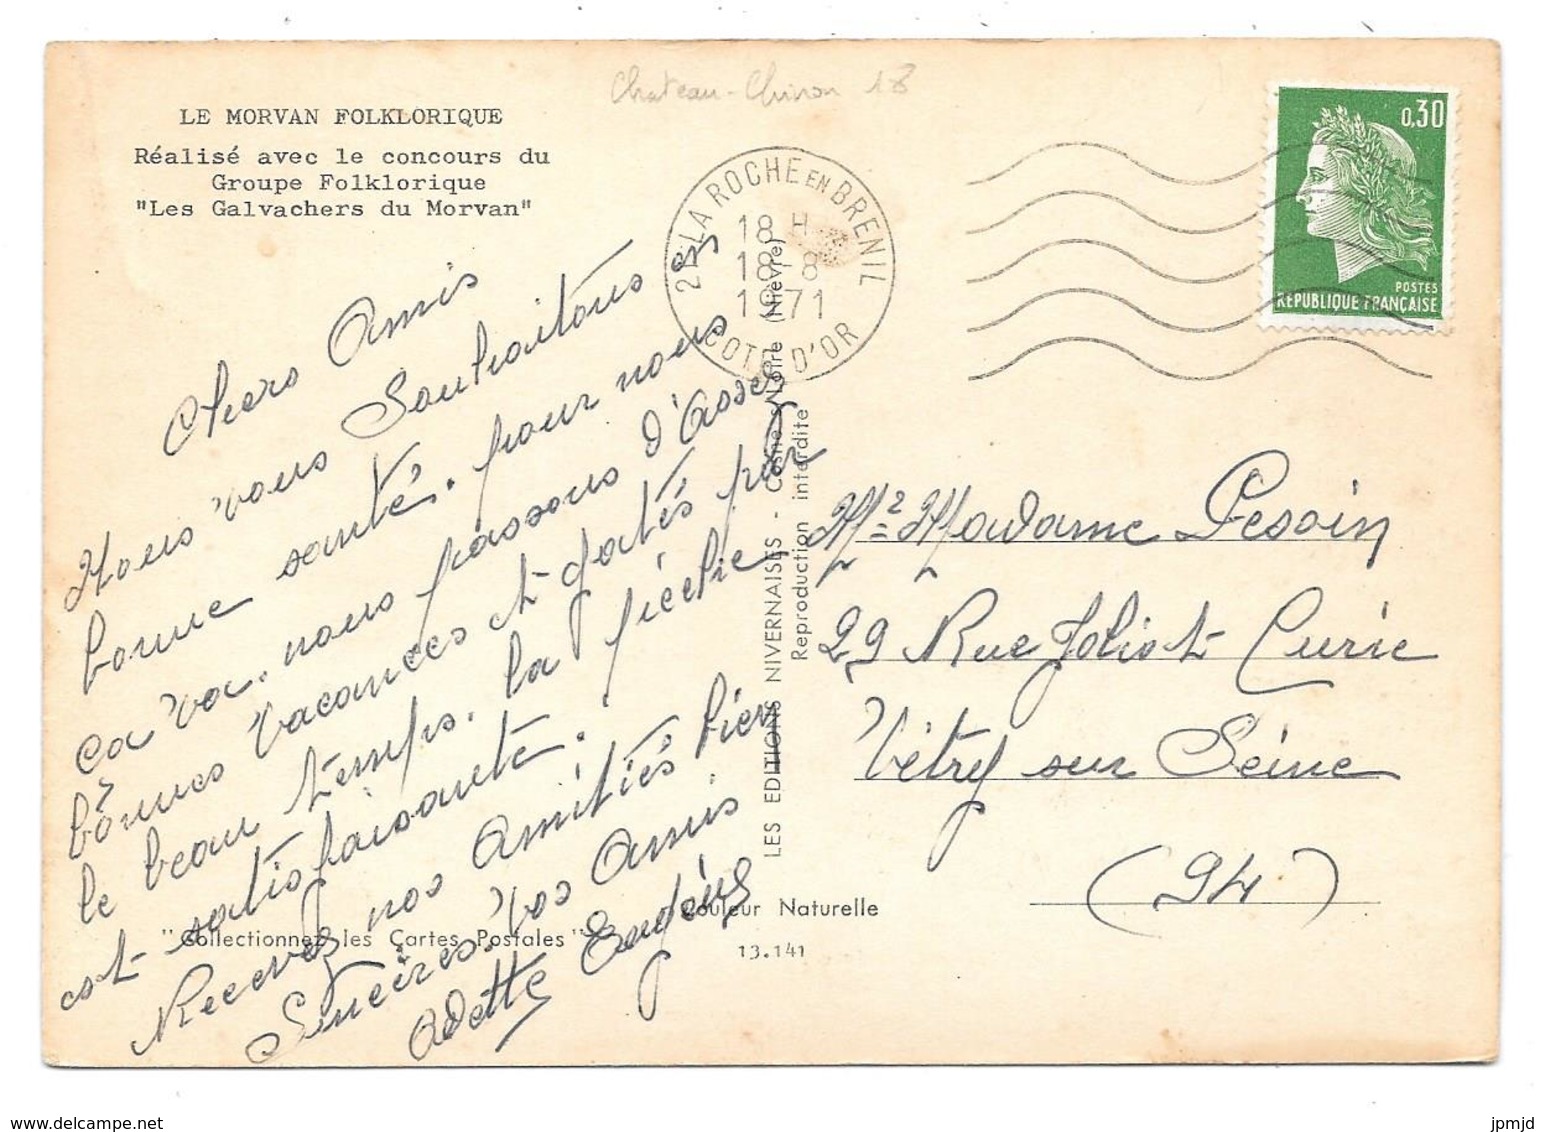 Chateau-Chinon 18
LE MORVAN FOLKLORIQUE
Réalisé avec le concours du
Groupe Folklorique
"Les Galvachers du Morvan"
21 LA ROCHE EN BRENIL
18 H
18-8
1971
COTE D'OR
0,30
POSTES
REPUBLIQUE FRANÇAISE
Chers Amis
Nous vous Souhaitons en
bonne santé. pour nous
ça va. nous passons d'Assez
bonnes vacances et gatés par
le beau temps. la pêche
est satisfaisante.
Recevez nos Amitiés bien
Sincères. Vos Amis
Odette Eugène
LES EDITIONS NIVERNAISES - Cosne s/Loire (Nièvre)
Reproduction interdite
Mr Madame Pesoin
29 Rue Joliot Curie
Vitry sur Seine
(94)
Couleur Naturelle
"Collectionnez les Cartes Postales"
13.141
www.delcampe.net
jpmjd